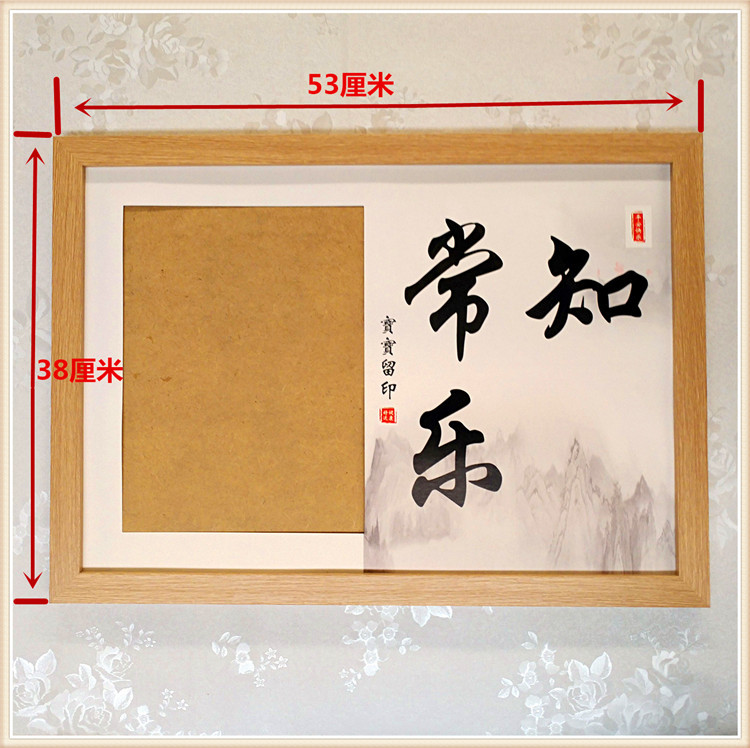 53厘米
38厘米
知
常乐
寶寶留印